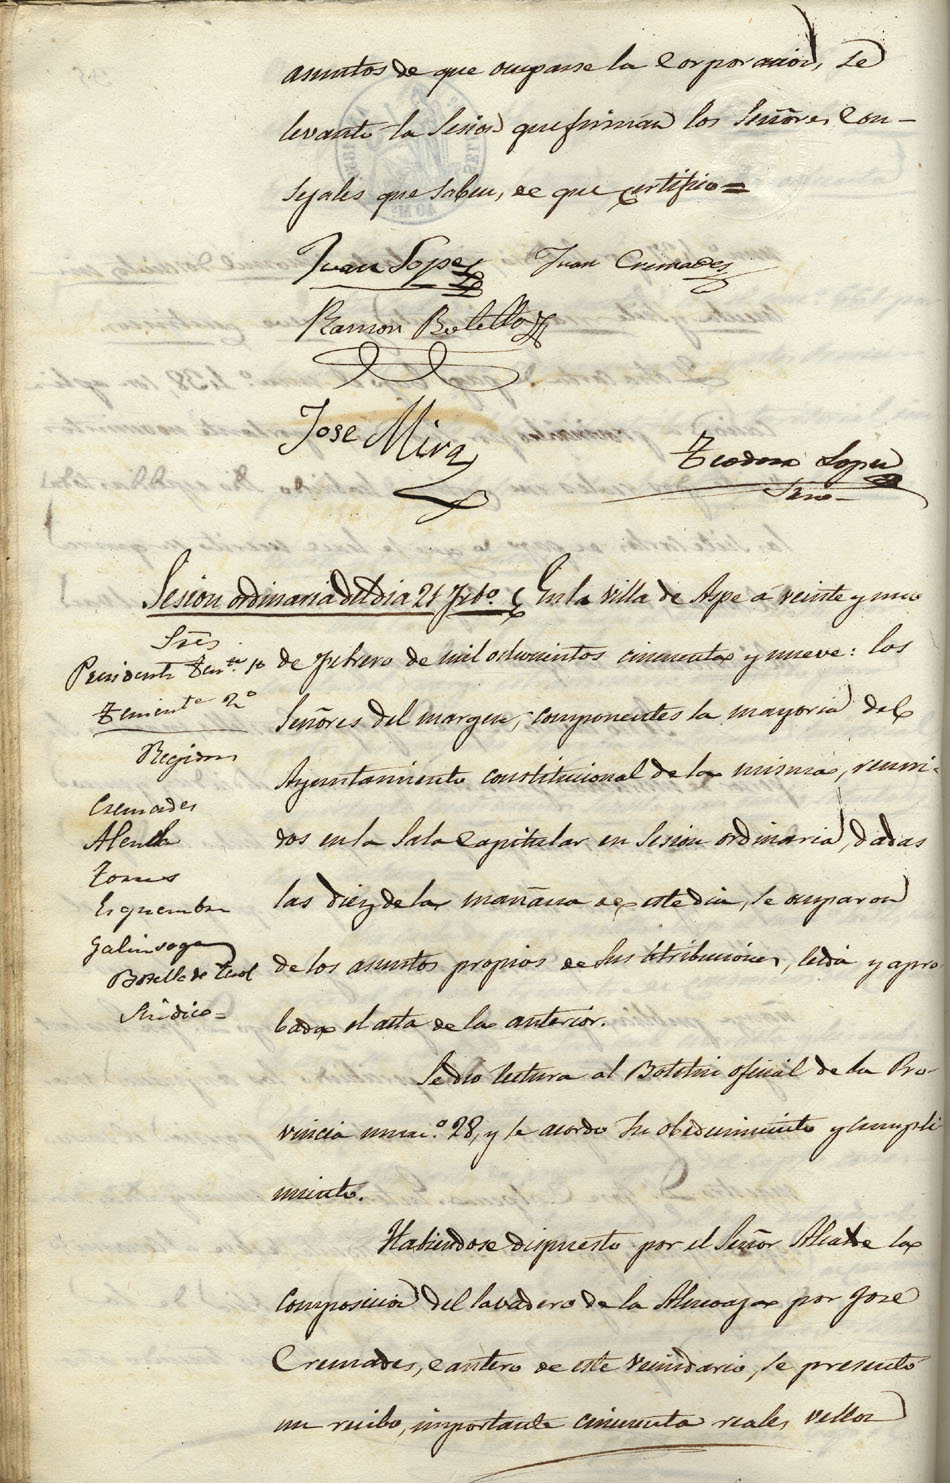 asuntos de que ocuparse la Corporacion, se
levantó la Sesion que firman los Señores Con-
sejales que saben, de que certifico=
Juan Lopez Juan Cremades
Ramon Botella
Jose Mira
Teodoro Lopez
Srio
Sesion ordinaria del dia 21 Febo. En la Villa de Aspe á veinte y uno
Sres.
Presidente Tente. 1º
Teniente 2º
Regidores
Cremades
Alenda
Torres
Esquembre
Galinsoga
Botella de Teol
Sindico=
de Febrero de mil ochocientos cincuenta y nueve: los
Señores del margen, componentes la mayoria del
Ayuntamiento constitucional de la misma, reuni-
dos en la Sala Capitular en Sesion ordinaria, dadas
las diez de la mañana de este dia, se ocuparon
de los asuntos propios de sus atribuciones, leida y apro-
bada el acta de la anterior.
Se dió lectura al Boletin oficial de la Pro-
vincia numo. 28, y se acordó su obedecimiento y cumpli
miento.
Habiendose dispuesto por el Señor Alcalde la
composicion del lavadero de la Almoaja por José
Cremades, cantero de este vecindario, se presentó
un recibo, importante cincuenta reales vellon